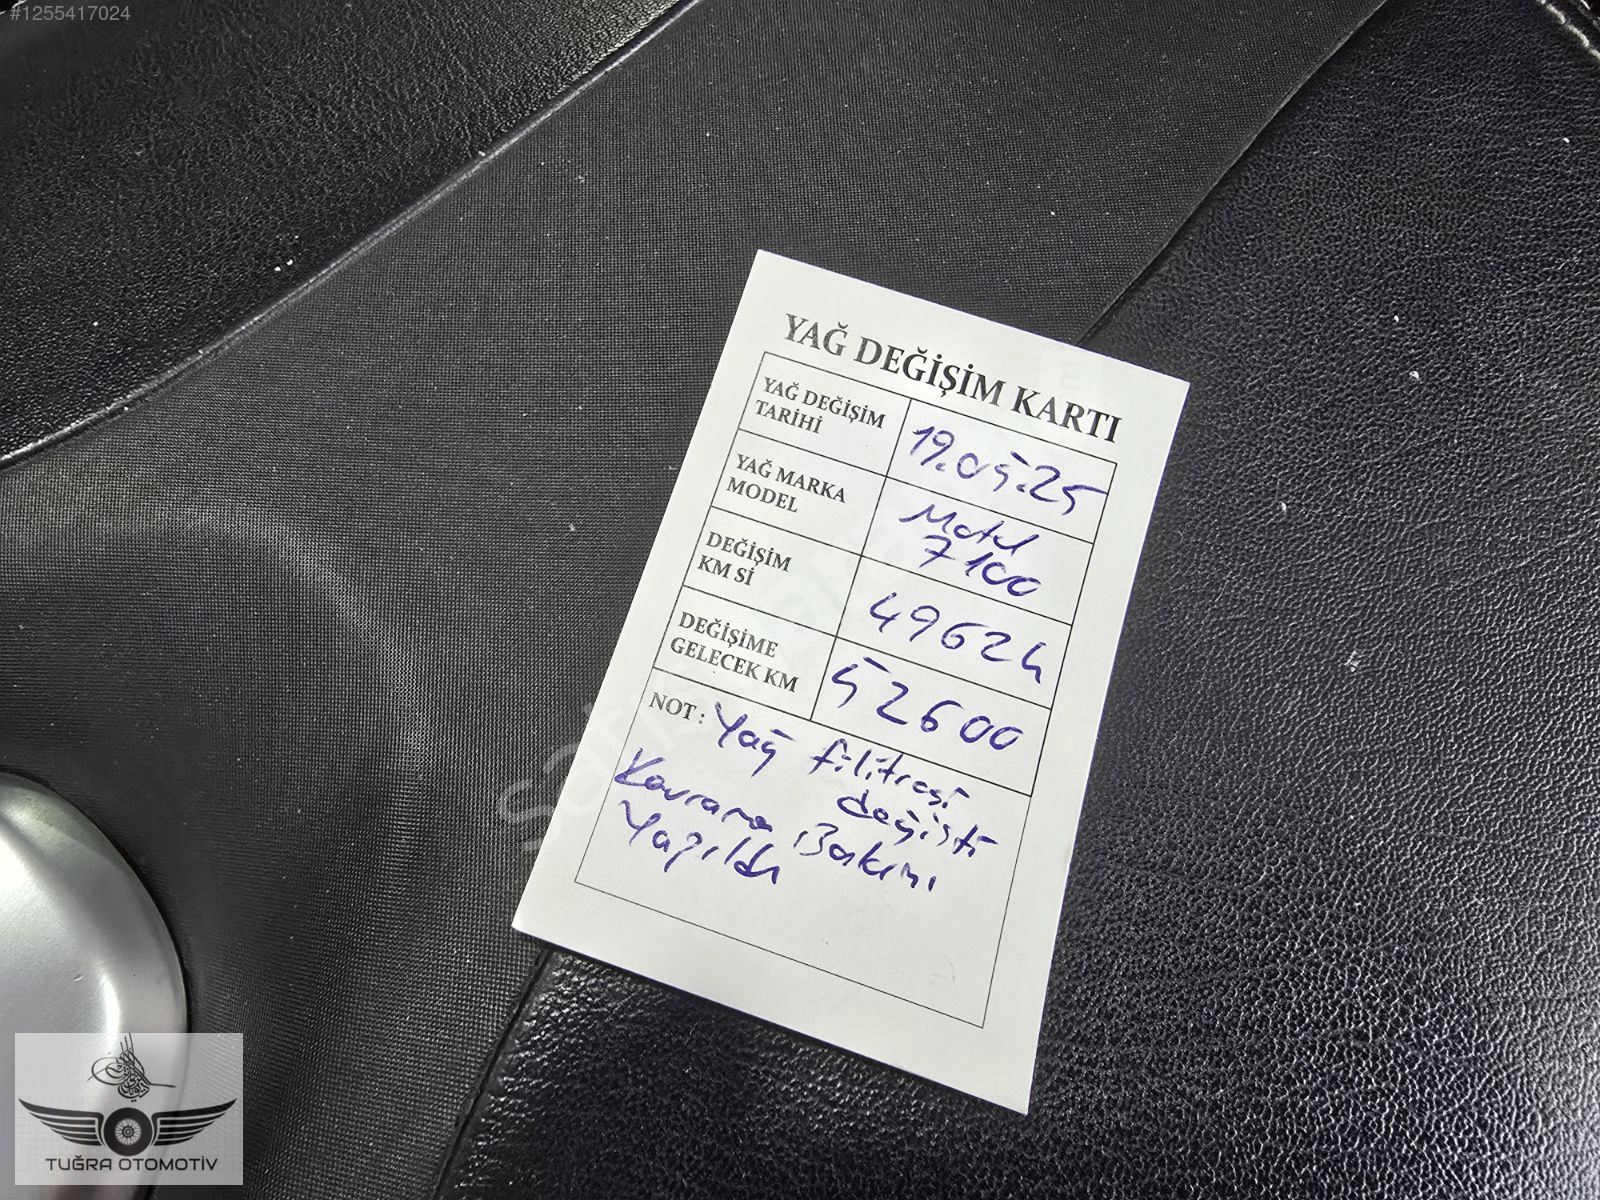 #1255417024
YAĞ DEĞİŞİM KARTI
YAĞ DEĞİŞİM
TARİHİ
19.05.25
YAĞ MARKA
MODEL
Motul
7100
DEĞİŞİM
KM Sİ
49624
DEĞİŞİME
GELECEK KM
52600
NOT : Yağ filitresi
değişti
Kavrama Bakımı
Yapıldı
TUĞRA OTOMOTİV